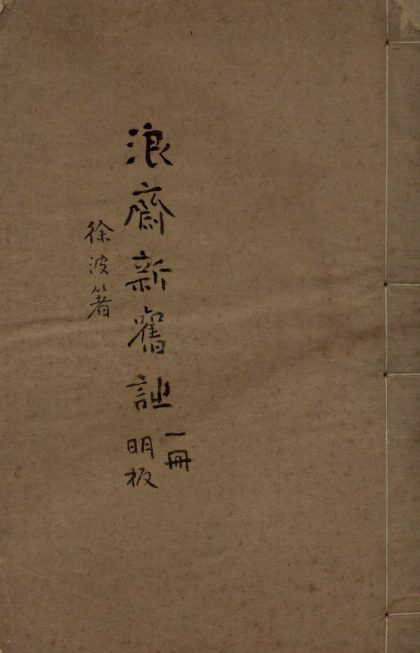 浪齋新舊詩
一冊
明板
徐波箸